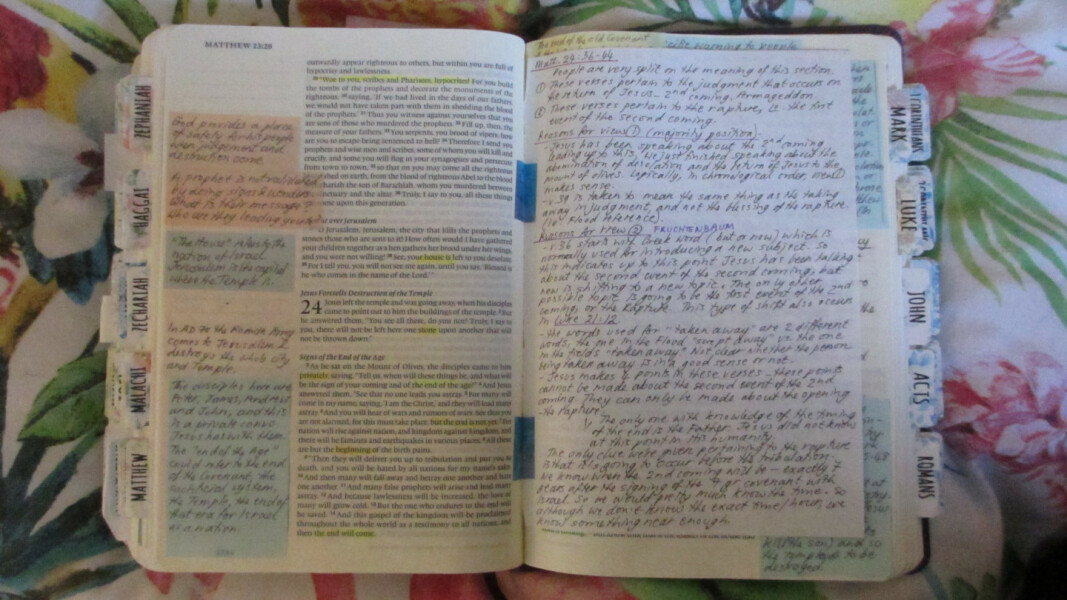 MATTHEW 23:29
outwardly appear righteous to others, but within you are full of
hypocrisy and lawlessness.
"Woe to you, scribes and Pharisees, hypocrites! For you build
the tombs of the prophets and decorate the monuments of the
righteous, 30 saying, 'If we had lived in the days of our fathers,
we would not have taken part with them in shedding the blood
of the prophets.' 31 Thus you witness against yourselves that you
are sons of those who murdered the prophets. 32 Fill up, then, the
measure of your fathers. 33 You serpents, you brood of vipers, how
are you to escape being sentenced to hell? 34 Therefore I send you
prophets and wise men and scribes, some of whom you will kill and
crucify, and some you will flog in your synagogues and persecute
from town to town, 35 so that on you may come all the righteous
shed on earth, from the blood of righteous Abel to the blood
the son of Barachiah, whom you murdered between
and the altar. 36 Truly, I say to you, all these things
upon this generation.
over Jerusalem
Jerusalem, Jerusalem, the city that kills the prophets and
stones those who are sent to it! How often would I have gathered
your children together as a hen gathers her brood under her wings,
and you were not willing! 38 See, your house is left to you desolate.
39 For I tell you, you will not see me again, until you say, 'Blessed is
he who comes in the name of the Lord.'"
Jesus Foretells Destruction of the Temple
24 Jesus left the temple and was going away, when his disciples
came to point out to him the buildings of the temple. 2 But
he answered them, "You see all these, do you not? Truly, I say to
you, there will not be left here one stone upon another that will
not be thrown down."
Signs of the End of the Age
3 As he sat on the Mount of Olives, the disciples came to him
privately, saying, "Tell us, when will these things be, and what will
be the sign of your coming and of the end of the age?" 4 And Jesus
answered them, "See that no one leads you astray. 5 For many will
come in my name, saying, 'I am the Christ,' and they will lead many
astray. 6 And you will hear of wars and rumors of wars. See that you
are not alarmed, for this must take place, but the end is not yet. 7 For
nation will rise against nation, and kingdom against kingdom, and
there will be famines and earthquakes in various places. 8 All these
are but the beginning of the birth pains.
9 "Then they will deliver you up to tribulation and put you to
death, and you will be hated by all nations for my name's sake.
10 And then many will fall away and betray one another and hate
one another. 11 And many false prophets will arise and lead many
astray. 12 And because lawlessness will be increased, the love of
many will grow cold. 13 But the one who endures to the end will
be saved. 14 And this gospel of the kingdom will be proclaimed
throughout the whole world as a testimony to all nations, and
then the end will come.
God provides a place
of safety for his people
when judgement and
destruction come.
A prophet is not validated
by doing signs & wonders.
What is their message &
who are they leading you
"The House" refers to the
nation of Israel.
Jerusalem is the capital
were the Temple is.
In AD 70 the Roman Army
comes to Jerusalem &
destroys the whole city
and Temple.
The disciples here are
Peter, James, Andrew
and John, and this
is a private convo
Jesus has with them.
The "end of the Age"
could refer to the end
of the Covenant, the
system,
the Temple, the end of
that era for Israel
as a nation.
ZEPHANIAH
HAGGAI
ZECHARIAH
MALACHI
MATTHEW
The end of the old Covenant
warning to people
Matt. 24:36-44
People are very split on the meaning of this section.
① These verses pertain to the judgment that occurs on
the return of Jesus. 2nd coming, Armageddon.
② These verses pertain to the rapture, is the first
event of the second coming.
Reasons for View ① (majority position):
- Jesus has been speaking about the 2nd coming
leading up to this. He just finished speaking about the
abomination of desolation and the return of Jesus to the
mount of olives. Logically, in chronological order, view ①
makes sense.
- v.39 is taken to mean the same thing as the taking
away in judgment, and not the blessing of the rapture.
( Flood reference)
Reasons for View ② FRUCHTENBAUM
- v.36 starts w/ Greek word (but or now) which is
normally used for introducing a new subject. So
this indicates up to this point Jesus has been talking
about the second event of the second coming, but
now is shifting to a new topic. The only other
possible topic is going to be the first event of the 2nd
coming, or the Rapture. This type of shift also occurs
in Luke 21:12
- the words used for "taken away" are 2 different
words, the one in the Flood "swept away" vs. the one
in the fields "taken away." Not clear whether the person
being taken away is in a good sense or not.
- Jesus makes points in these verses - these points
cannot be made about the second event of the 2nd
coming. They can only be made about the opening
- the Rapture.
1) The only one with knowledge of the timing
of the end is the Father. Jesus did not know
at this point in His humanity.
The only clue we're given pertaining to the rapture
is that it is going to occur before the tribulation.
We know when the 2nd coming will be - exactly 7
years after the signing of the 7 yr covenant with
Israel. So we would pretty much know the time. So
although we don't know the exact time/hour, we
know something near enough.
and so
the Temple is to be
destroyed.
MARK
LUKE
JOHN
ACTS
ROMANS
1 CORINTHIANS